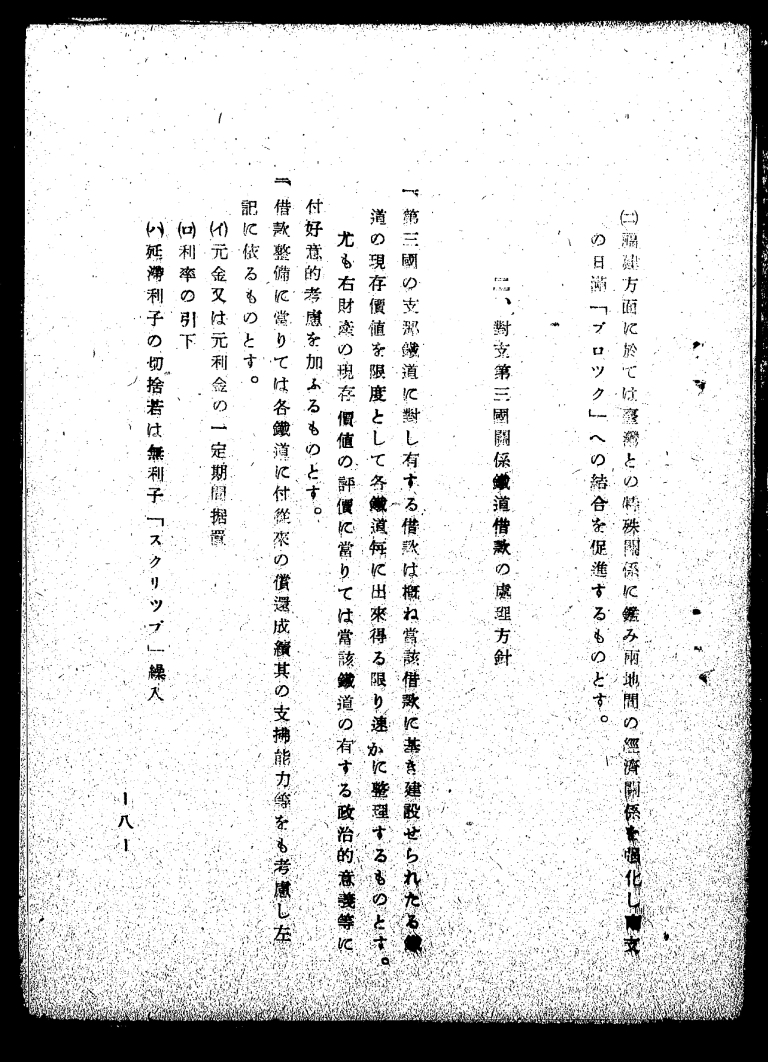 ㈡福建方面に於ては臺灣との特殊關係に鑑み兩地間の經濟關係を强化し南支
の日滿「ブロツク」への結合を促進するものとす。
二、對支第三國關係鐵道借款の處理方針
一、第三國の支那鐵道に對し有する借款は槪ね當該借款に基き建設せられたる鐵
道の現存價値を限度として各鐵道每に出來得る限り速かに整理するものとす。
尤も右財產の現存價値の評價に當りては當該鐵道の有する政治的意義等に
付好意的考慮を加ふるものとす。
二、借款整備に當りては各鐵道に付從來の償還成績其の支拂能力等をも考慮し左
記に依るものとす。
(イ)元金又は元利金の一定期間据置
(ロ)利率の引下
(ハ)延滯利子の切捨若は無利子「スクリツプ」繰入
―八―